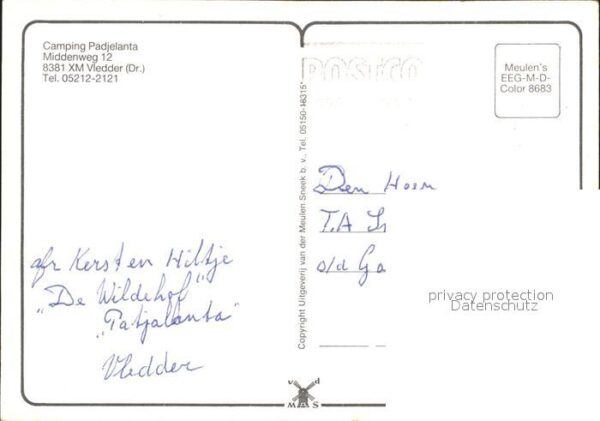 Camping Padjelanta
Middenweg 12
8381 XM Vledder (Dr.)
Tel. 05212-2121
afz Kersten Hiltje
"De Wildehof"
"Patjalanta"
Vledder
Copyright Uitgeverij van der Meulen Sneek b. v., Tel. 05150-16315*
v d
MAS
POSTCO
Meulen's
EEG-M-D-
Color 8683
Den Hoorn
T.A
o/d Ga
privacy protection
Datenschutz